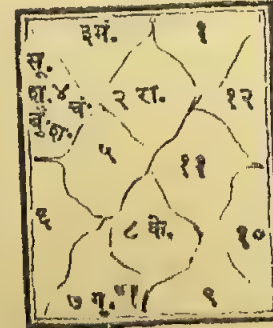 ३मं. १
सू.
श.४ चं. २ रा. १२
बु. शु.
५ ११
६ ८ के. १०
७ गु. ९